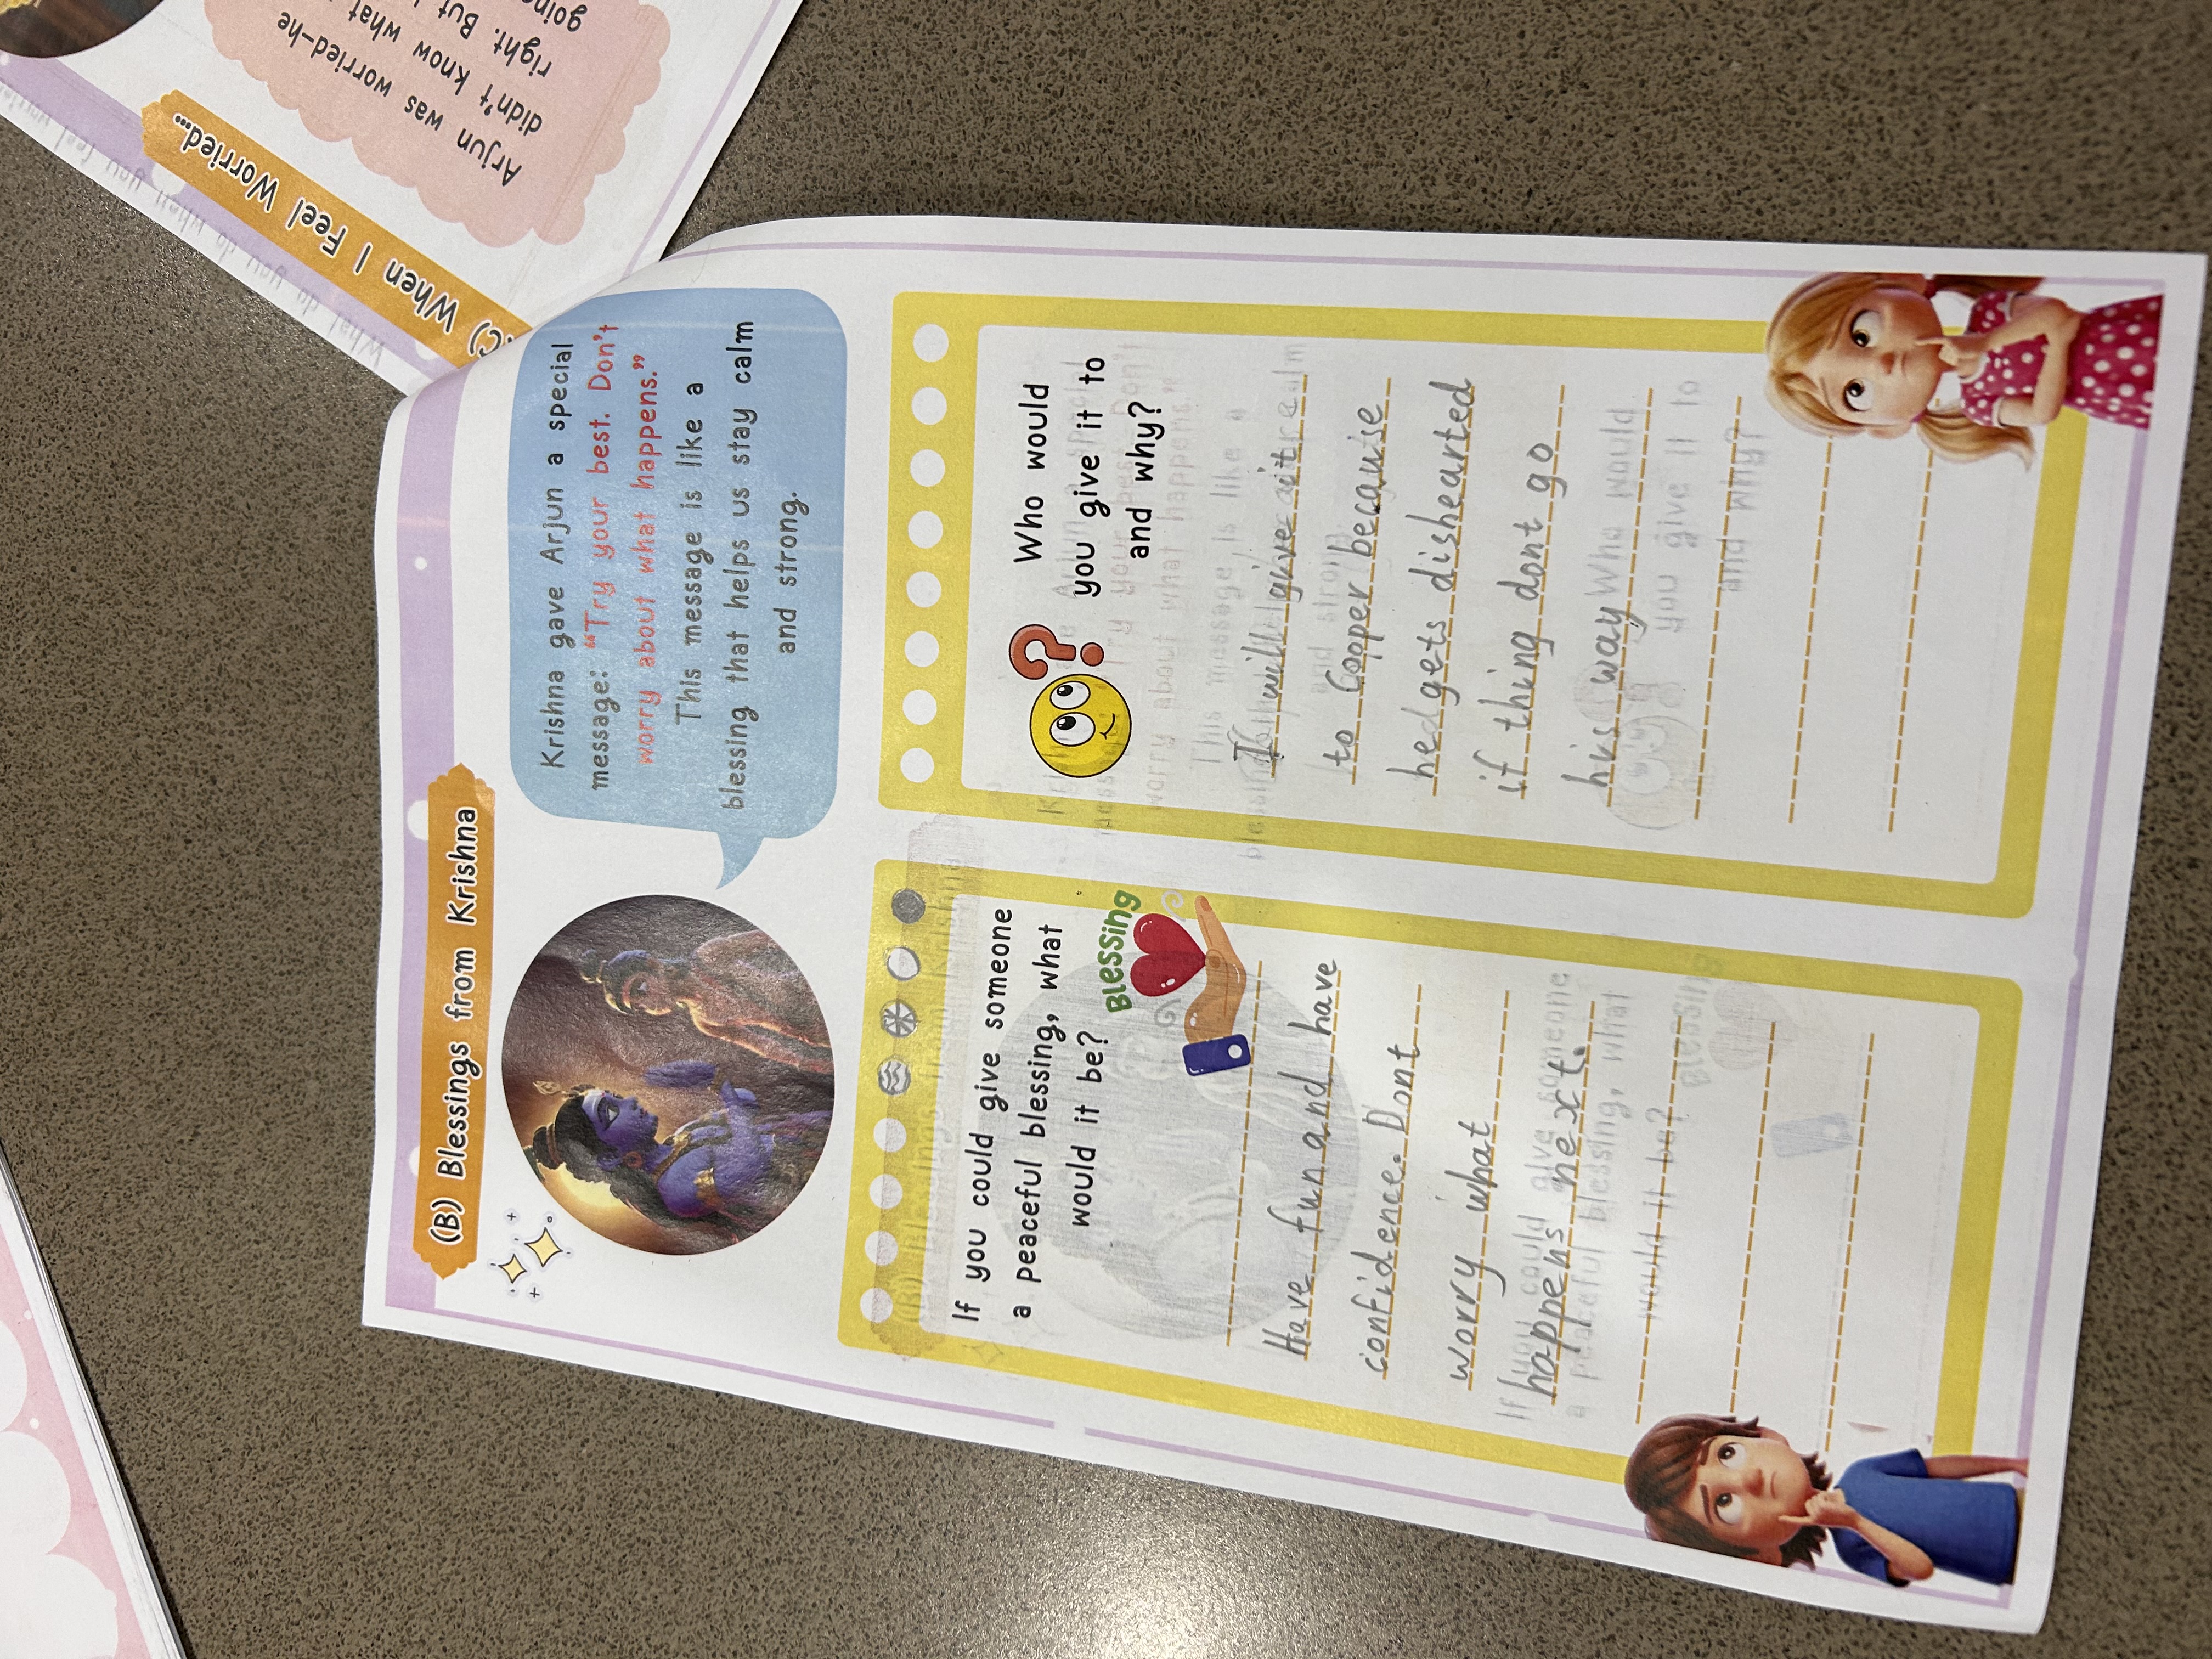 (B) Blessings from Krishna
Krishna gave Arjun a special
message: “Try your best. Don't
worry about what happens.”
This message is like a
blessing that helps us stay calm
and strong.
If you could give someone
a peaceful blessing, what
would it be?
Blessing
Have fun and have
confidence. Dont
worry what
happens next.
Who would
you give it to
and why?
I will give it
to Cooper because
he gets disheartted
if thing dont go
his way
(C) When I Feel Worried...
Arjun was worried-he
didn't know what
right. But
going